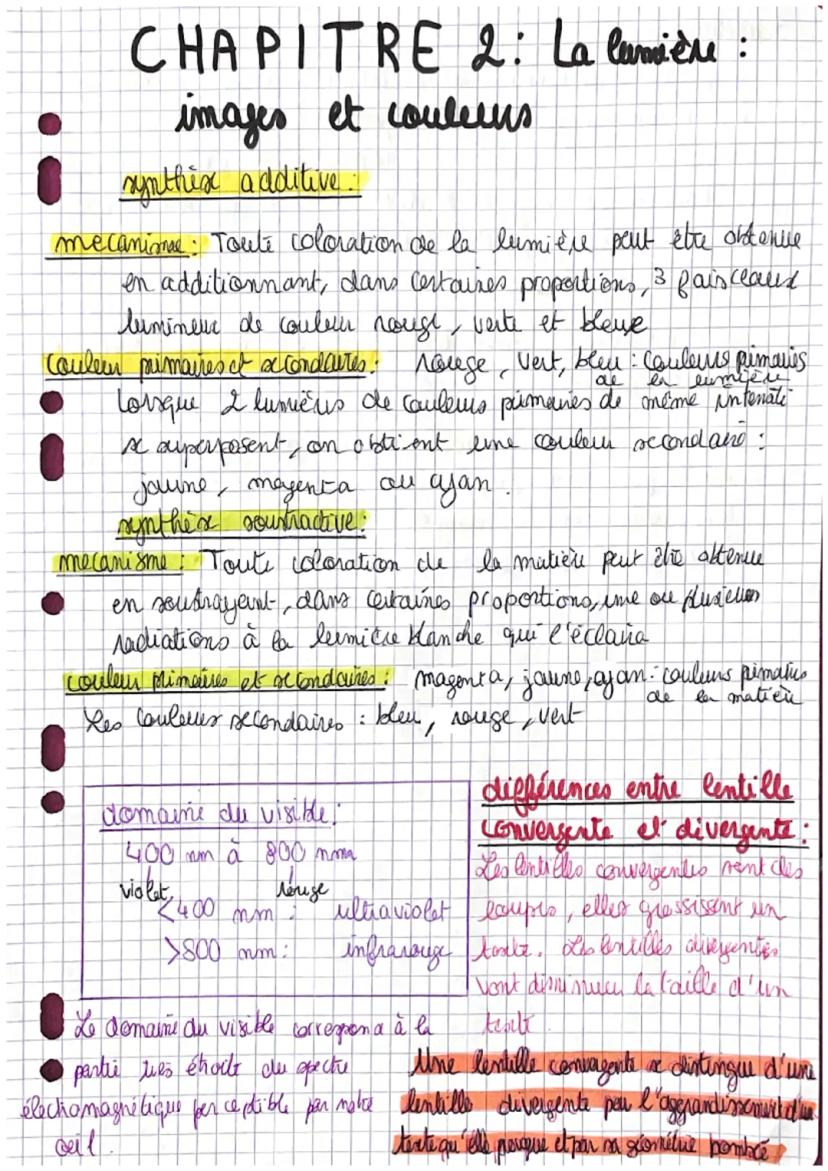 CHAPITRE 2: La lumière :
images et couleurs
synthèse additive :
mecanisme : Toute coloration de la lumière peut être obtenue
en additionnant, dans certaines proportions, 3 faisceaux
lumineux de couleur rouge, verte et bleue
couleur primaires et secondaires : rouge, vert, bleu : couleurs primaires
de la lumière
Lorsque 2 lumières de couleurs primaires de même intensité
se superposent, on obtient une couleur secondaire :
jaune, magenta ou cyan.
synthèse soustractive :
mecanisme : Toute coloration de la matière peut être obtenue
en soustrayant, dans certaines proportions, une ou plusieurs
radiations à la lumière blanche qui l'éclaire
couleur primaires et secondaires : magenta, jaune, cyan : couleurs primaires
de la matière
Les couleurs secondaires : bleu, rouge, vert
domaine du visible :
400 nm à 800 nm
violet rouge
<400 nm : ultraviolet
>800 nm : infrarouge
Le domaine du visible correspond à la
partie très étroite du spectre
électromagnétique perceptible par notre
oeil.
différences entre lentille
convergente et divergente :
Les lentilles convergentes sont des
loupes, elles grossissent un
texte. Les lentilles divergentes
vont diminuer la taille d'un
texte
Une lentille convergente se distingue d'une
lentille divergente par l'aggrandissement d'un
texte qu'elle provoque et par sa géométrie bombée